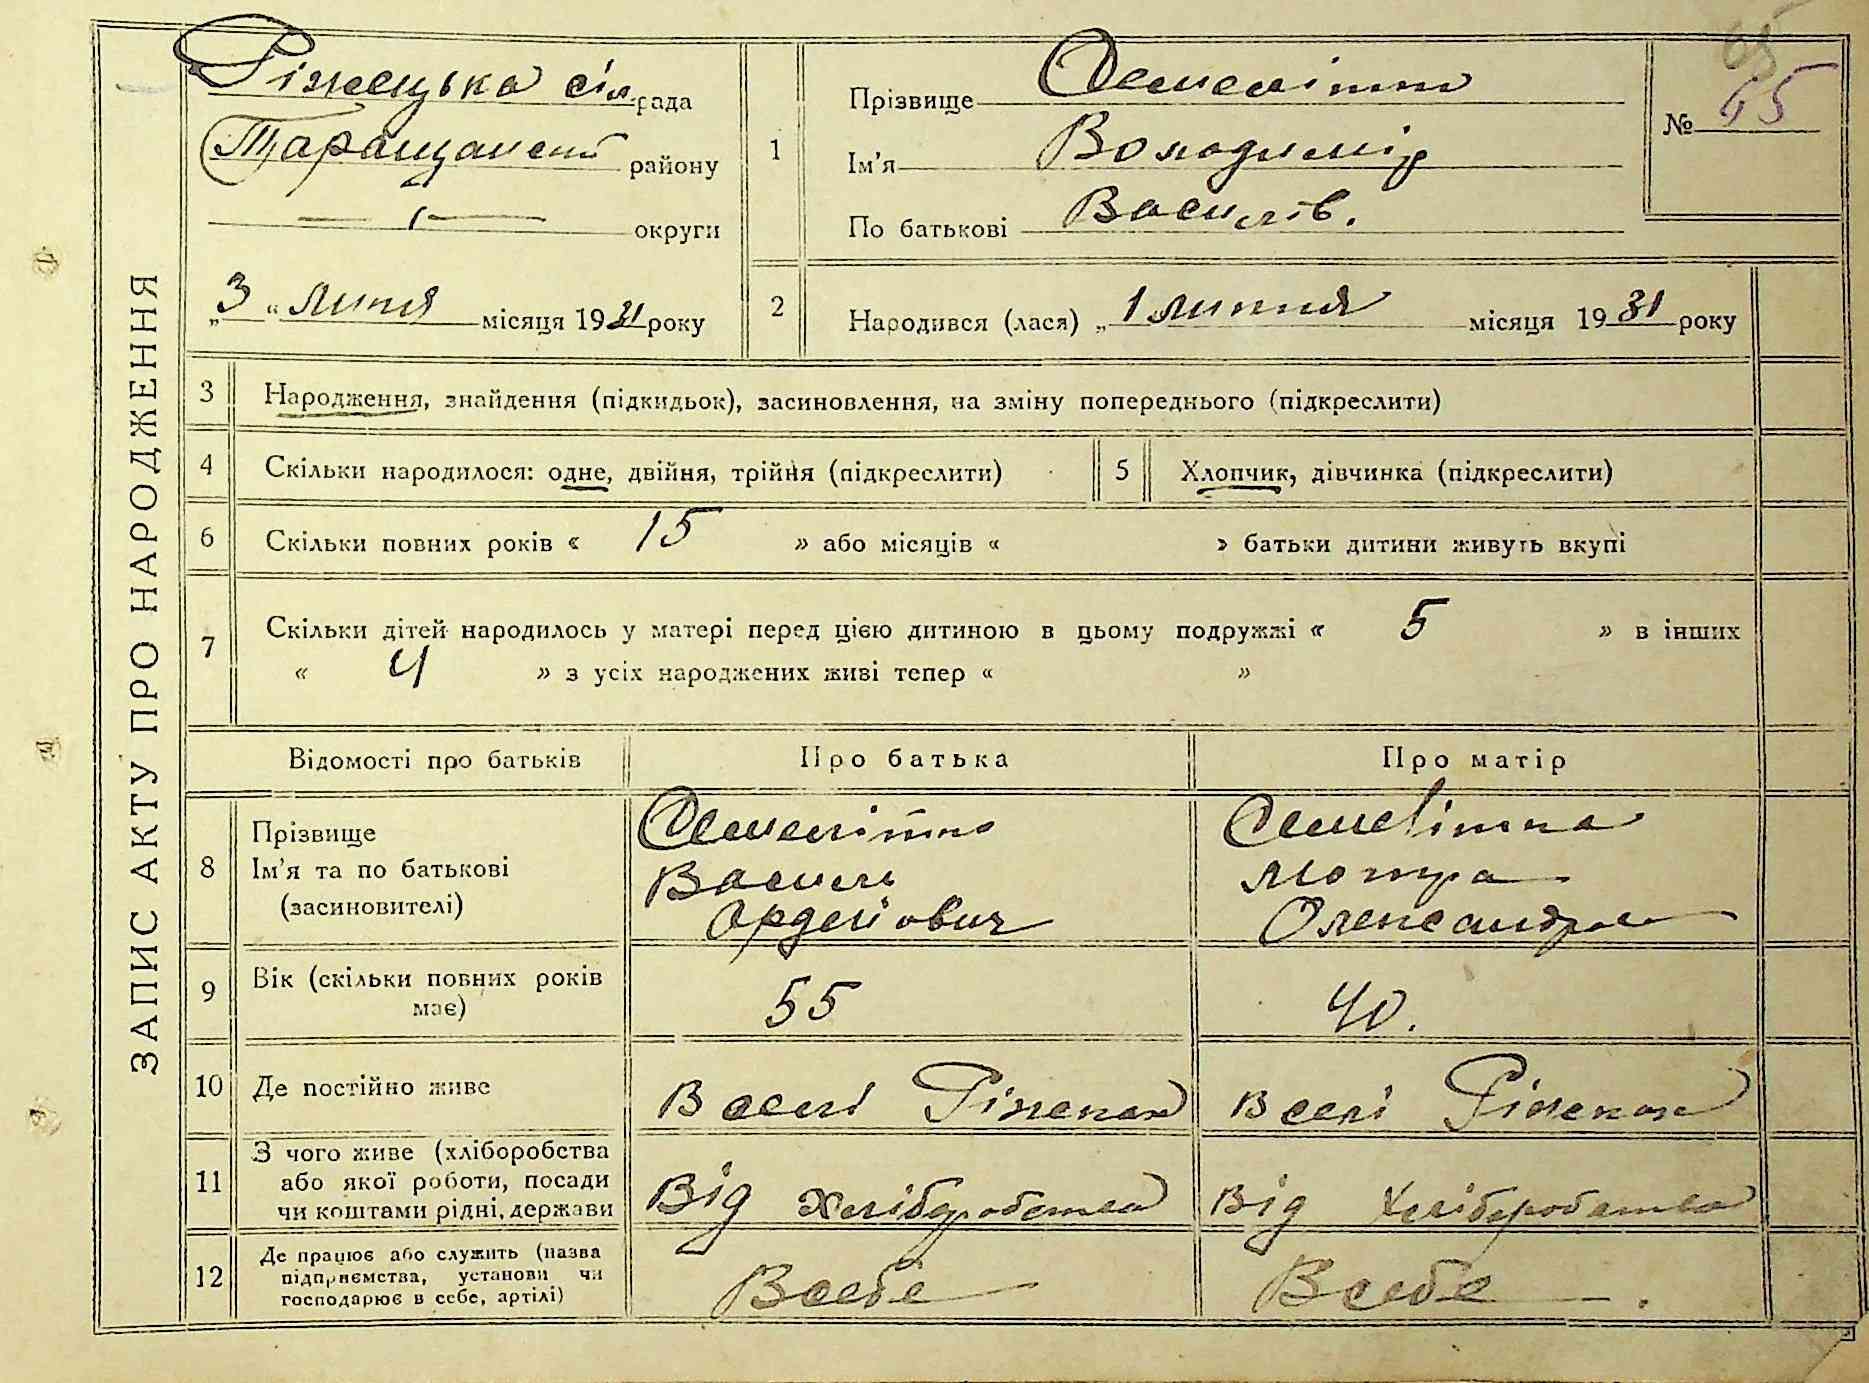 ЗАПИС АКТУ ПРО НАРОДЖЕННЯ
Ріжецька сіл.рада
Таращанськ району
округи
„3“ липня місяця 1931 року
1
Прізвище
Ім'я Володимір
По батькові Василів.
№ 65
65
2
Народився (лася) „1 липня місяця 1931 року
3 Народження, знайдення (підкидьок), засиновлення, на зміну попереднього (підкреслити)
4 Скільки народилося: одне, двійня, трійня (підкреслити)
5 Хлопчик, дівчинка (підкреслити)
6 Скільки повних років « 15 » або місяців « » батьки дитини живуть вкупі
7 Скільки дітей народилось у матері перед цією дитиною в цьому подружжі « 5 » в інших
« 4 » з усіх народжених живі тепер « »
Відомості про батьків Про батька Про матір
8
Прізвище
Ім'я та по батькові
(засиновителі)
Василь
Мотра
Олександров
9 Вік (скільки повних років має)
55
40.
10 Де постійно живе
В селі Ріжеках
В селі Ріжеках
11 З чого живе (хліборобства
або якої роботи, посади
чи коштами рідні, держави
Від Хліборобства
Від Хліборобства
12 Де працює або служить (назва
підприємства, установи чи
господарює в себе, артілі)
Всебе
Всебе